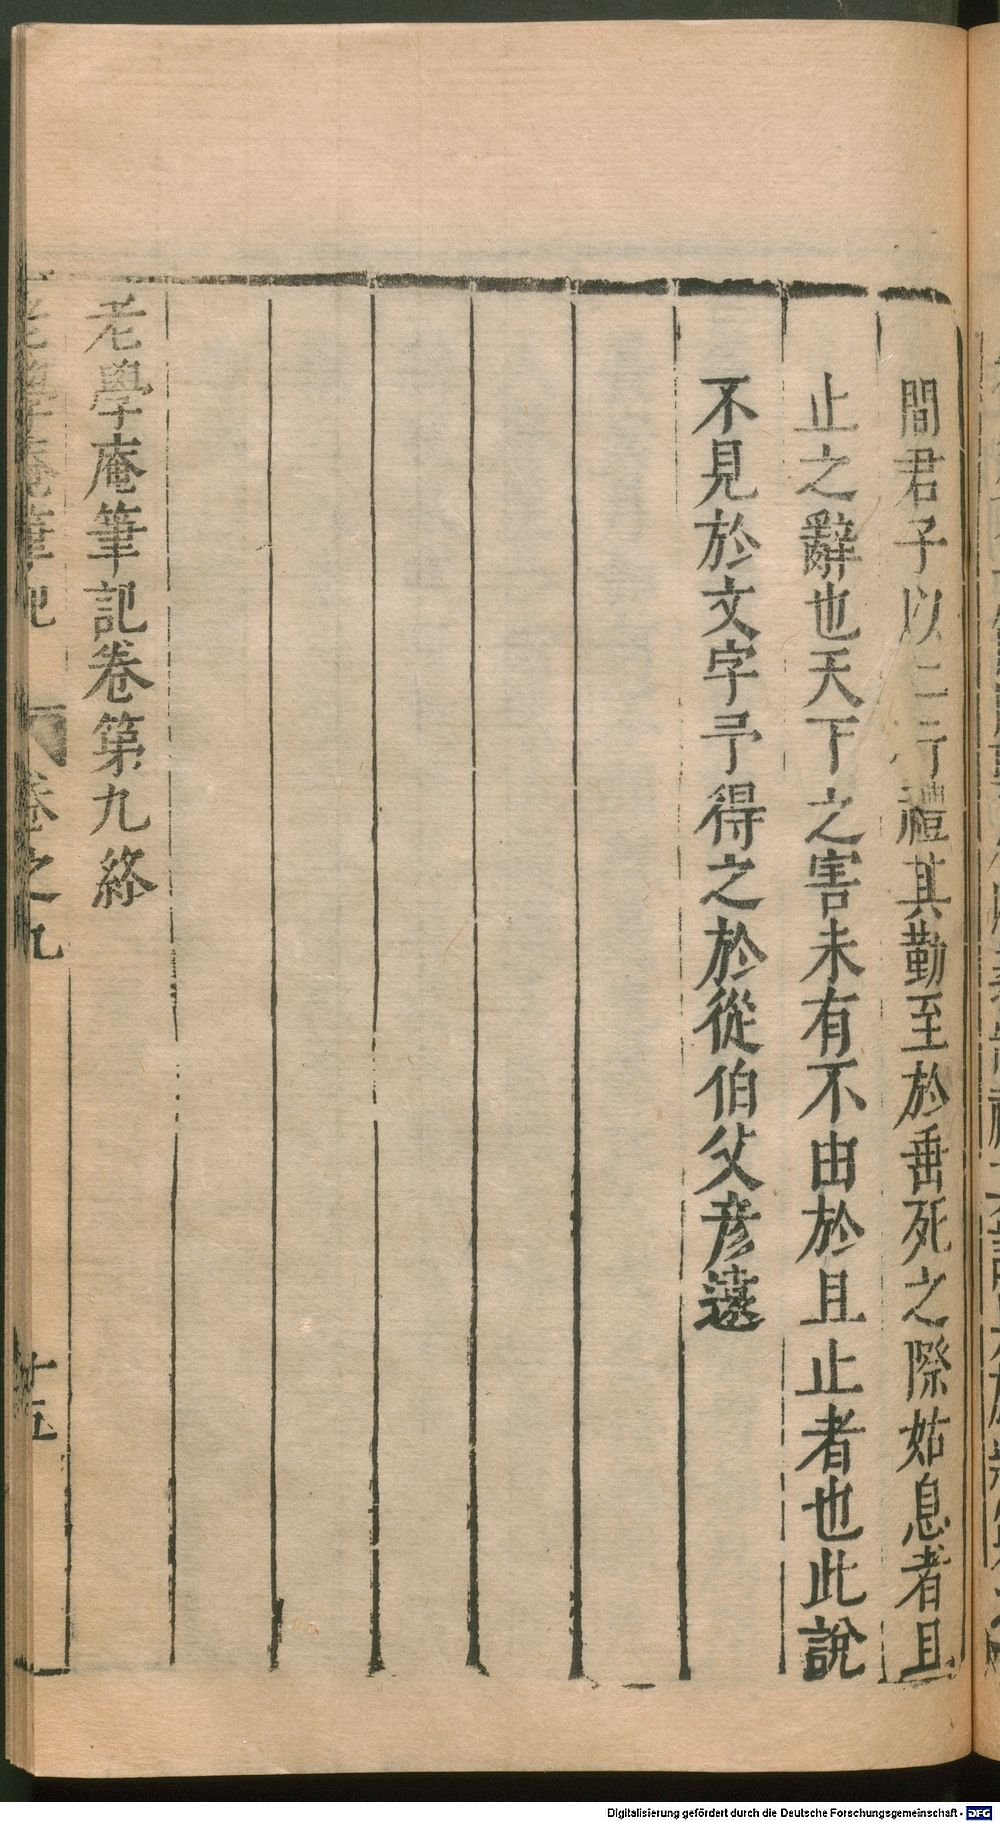 間君子以二行禮其勤至於垂死之際姑息者且
止之辭也天下之害未有不由於且止者也此說
不見於文字予得之於從伯父彦遠
老學庵筆記卷第九終
老學庵筆記 卷之九 十五
Digitalisierung gefördert durch die Deutsche Forschungsgemeinschaft - DFG